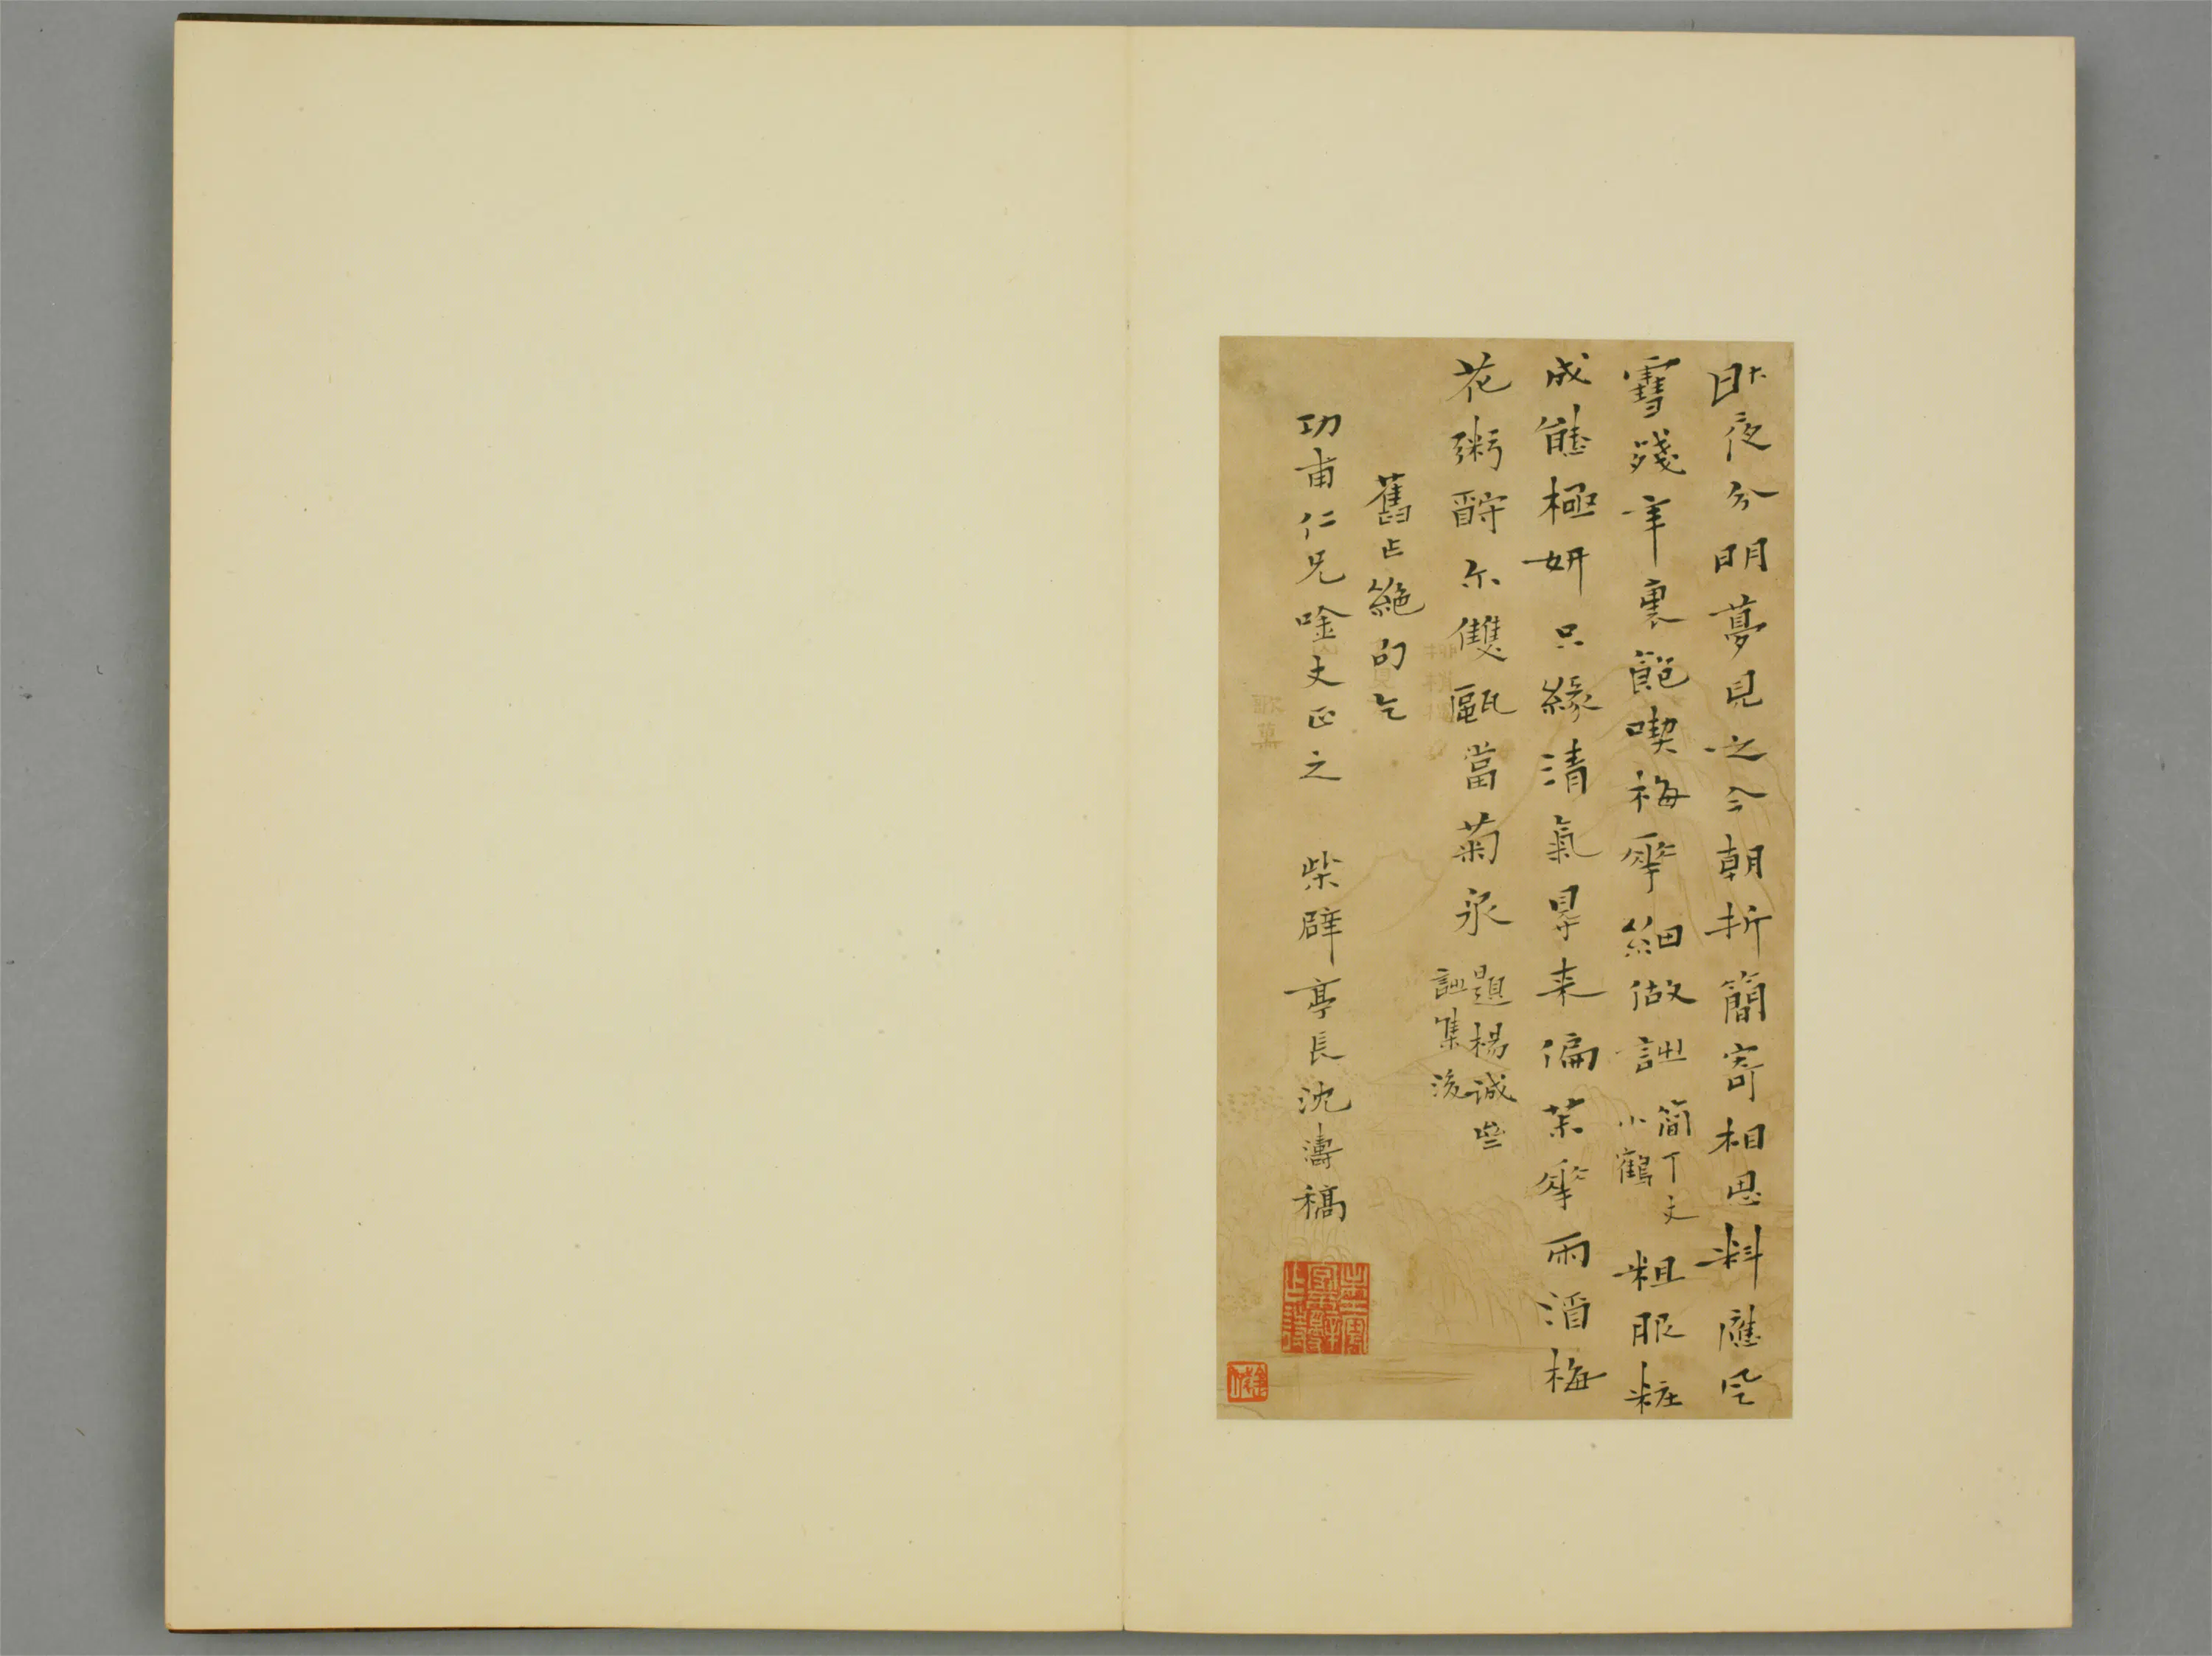 昨夜分明夢見之今朝折簡寄相思料應風
雪殘年裏飽喫梅華細做詩
簡丁丈
小鶴
粗服粧
成態極妍只緣清氣得来偏茶華雨酒梅
花粥酹尔雙甌當菊泉
題楊誠齋
詩集後
舊占絶句乞
功甫仁兄唫丈正之 柴辟亭長沈濤稿